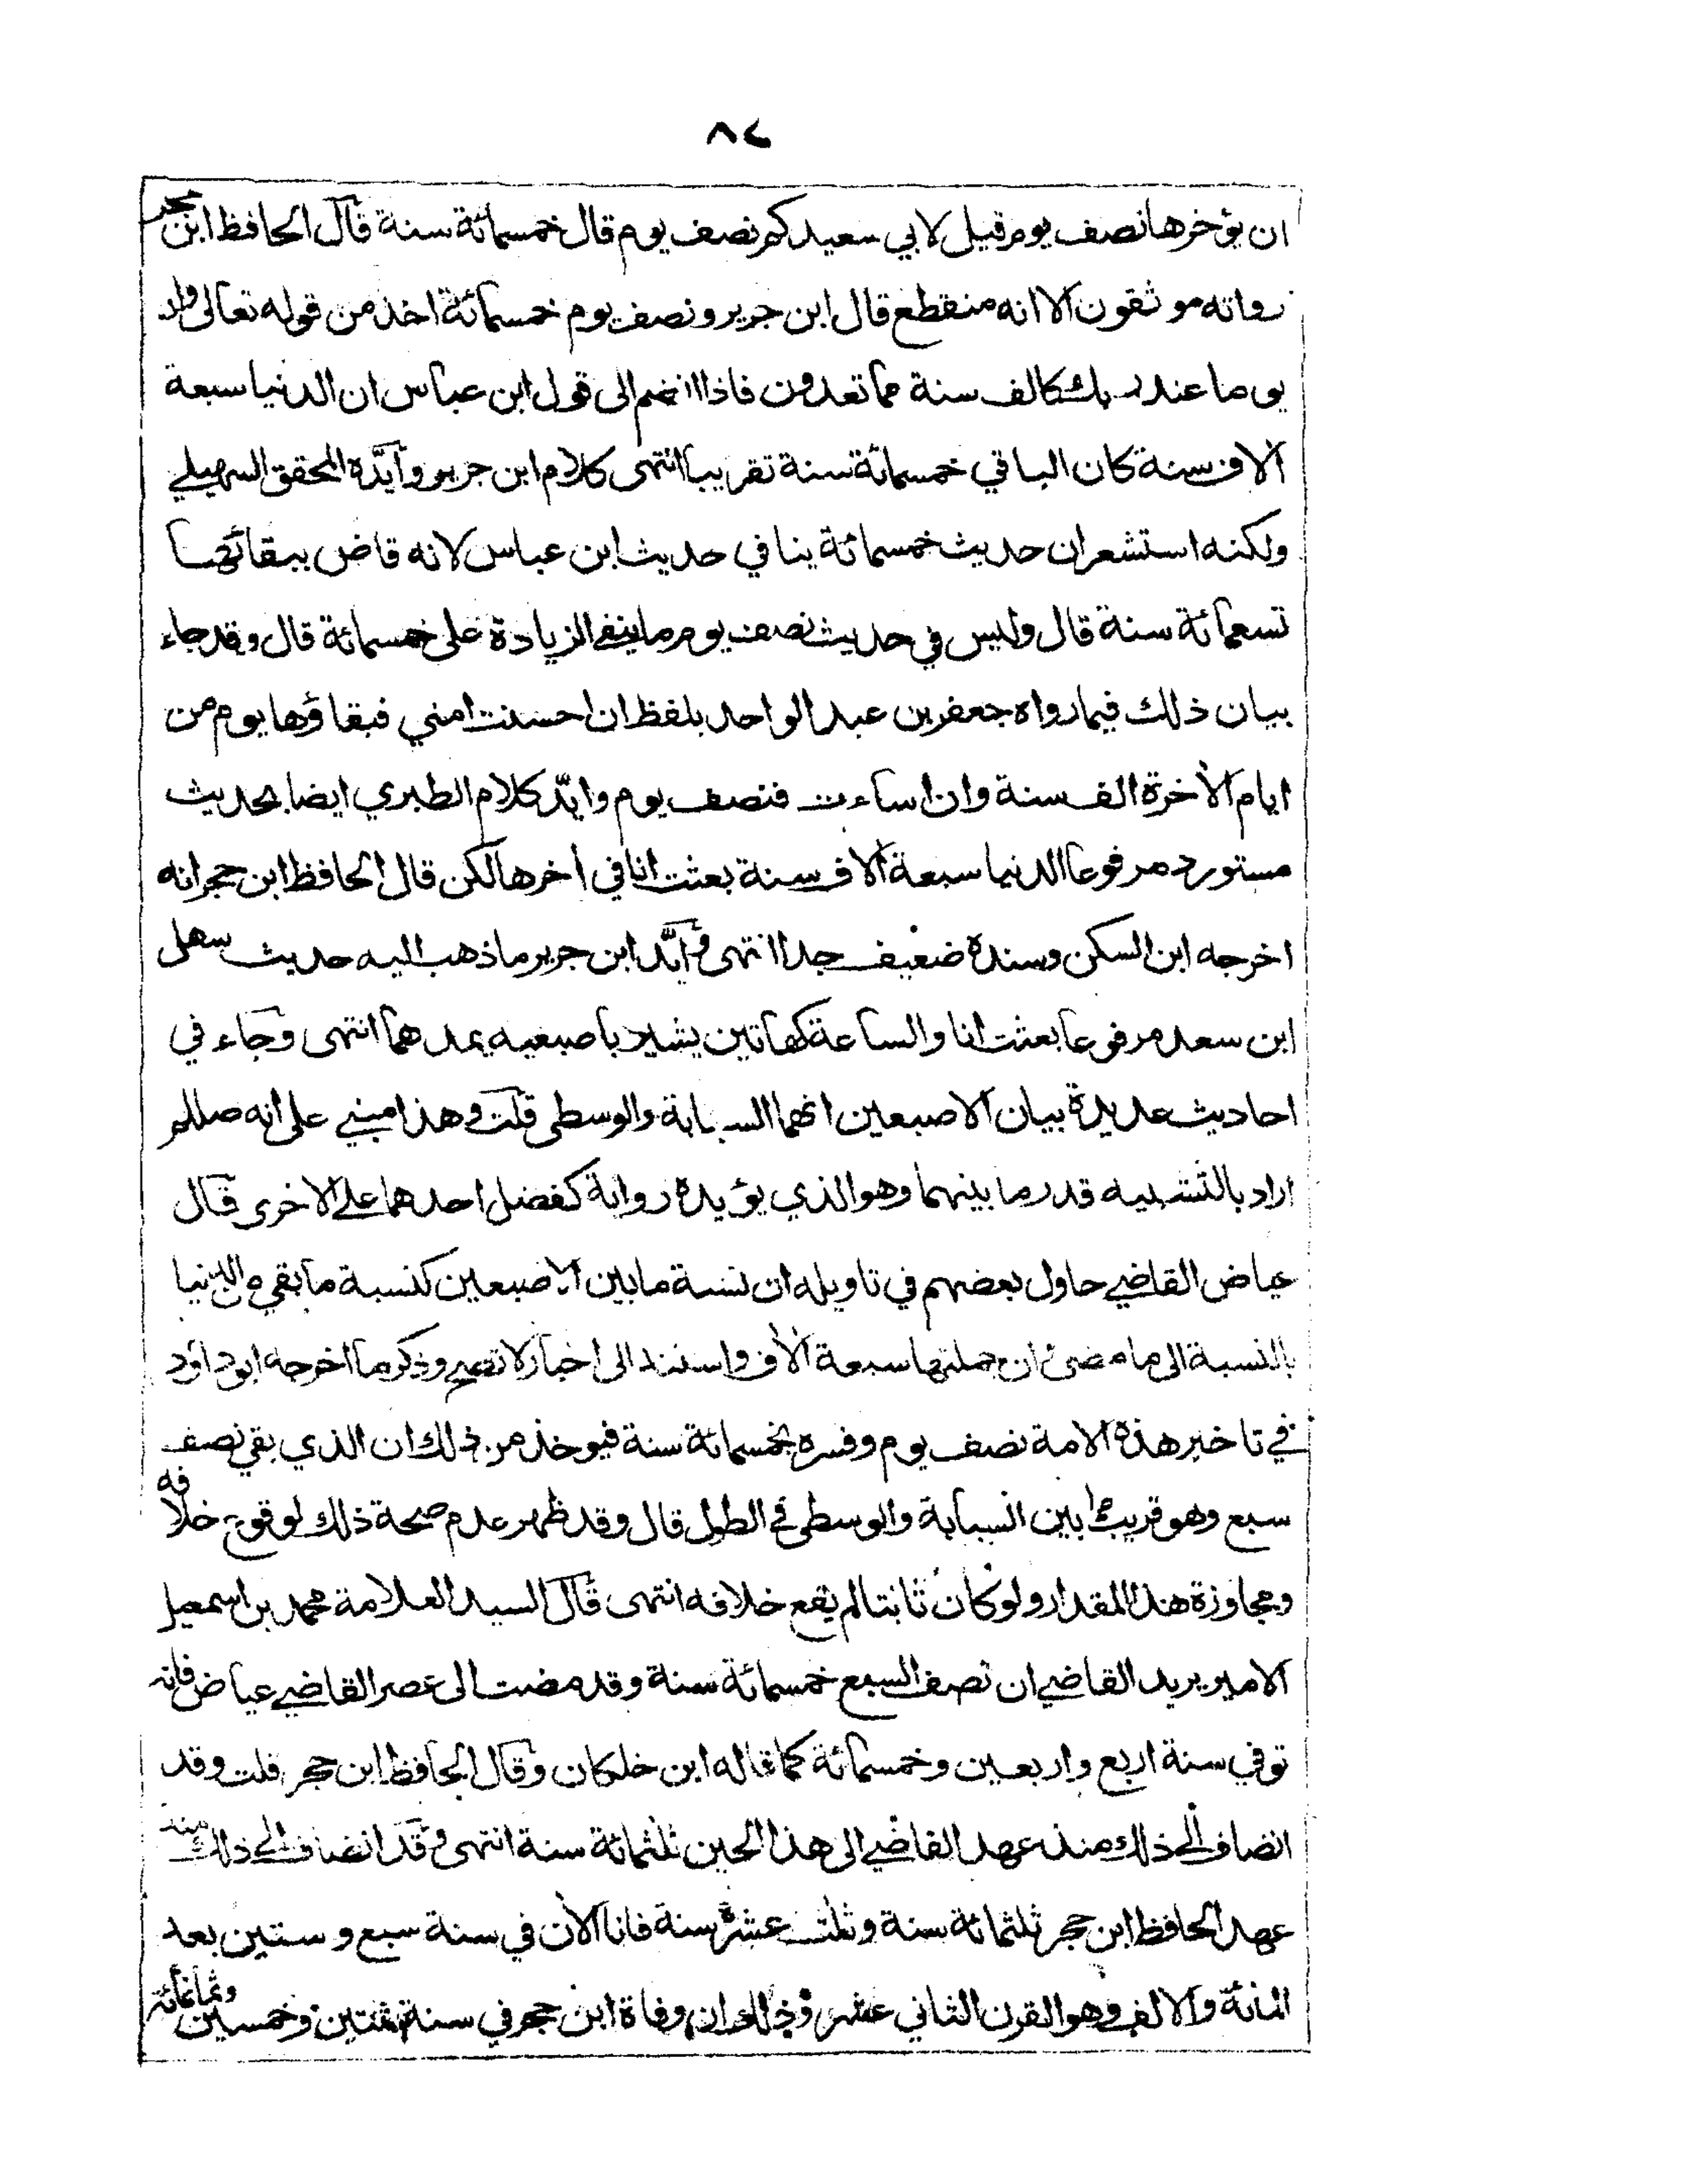 ٨٢
ان يؤخرها نصف يوم قيل لابي سعيد كم نصف يوم قال خمسمائة سنة قال الحافظ ابن حجر
رواته موثقون الا انه منقطع قال ابن جرير ونصف يوم خمسمائة اخذ من قوله تعالى وان
يوما عند ربك كالف سنة مما تعدون فاذا انضم الى قول ابن عباس ان الدنيا سبعة
آلاف سنة كان الباقي خمسمائة سنة تقريبا انتهى كلام ابن جرير وأيّده المحقق السهيلي
ولكنه استشعر ان حديث خمسمائة ينافي حديث ابن عباس لانه قاض ببقائها
تسعمائة سنة قال وليس في حديث نصف يوم ما ينفي الزيادة على خمسمائة قال وقد جاء
بيان ذلك فيما رواه جعفر بن عبد الواحد بلفظ ان احسنت امتي فبقاؤها يوم من
ايام الآخرة الف سنة وان اساءت فنصف يوم وايّد كلام الطبري ايضا بحديث
مستورد مرفوعا الدنيا سبعة آلاف سنة بعثت انا في أخرها لكن قال الحافظ ابن حجر انه
اخرجه ابن السكن وسنده ضعيف جدا انتهى وأيّد ابن جرير ما ذهب اليه حديث سهل
ابن سعد مرفوعا بعثت انا والساعة كهاتين يشير باصبعيه يمدهما انتهى وجاء في
احاديث عديدة بيان الاصبعين انهما السبابة والوسطى قلت وهذا مبني على انه صللم
اراد بالتشبيه قدر ما بينهما وهو الذي يؤيده رواية كفضل احدهما على الاخرى قال
عياض القاضي حاول بعضهم في تاويله ان نسبة ما بين الاصبعين كنسبة ما بقي من الدنيا
بالنسبة الى ما مضى وان جملتها سبعة آلاف واستند الى اخبار لا تصح وذكر ما اخرجه ابو داود
في تاخير هذه الامة نصف يوم وفسره بخمسمائة سنة فيوخذ من ذلك ان الذي بقي نصف
سبع وهو قريب مما بين السبابة والوسطى في الطول قال وقد ظهر عدم صحة ذلك لوقوع خلافه
ومجاوزة هذا المقدار ولو كان ثابتا لم يقع خلافه انتهى قال السيد العلامة محمد بن اسمعيل
الامير يريد القاضي ان نصف السبع خمسمائة سنة وقد مضت الى عصر القاضي عياض فانه
توفي سنة اربع واربعين وخمسمائة كما قاله ابن خلكان وقال الحافظ ابن حجر قلت وقد
انضاف الى ذلك منذ عهد القاضي الى هذا الحين ثلثمائة سنة انتهى وقد انضاف الى ذلك منذ
عهد الحافظ ابن حجر ثلثمائة سنة وثلث عشرة سنة فانا الآن في سنة سبع وستين بعد
المائة والالف وهو القرن الثاني عشر وذلك ان وفاة ابن حجر في سنة ثنتين وخمسين وثمانمائة